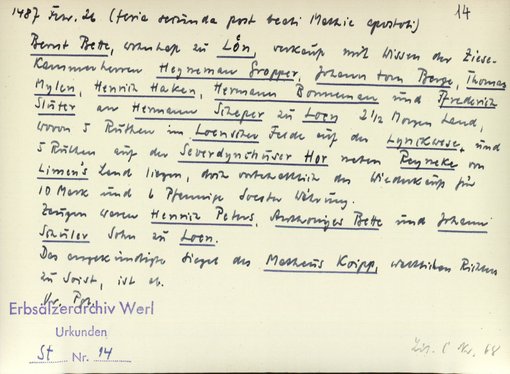 14
1487 Febr. 26 (feria secunda post beati Mathie apostoli)
Bernt Bette, wohnhaft zu Lön, verkauft mit Wissen der Ziese-
Kammerherren Heyneman Gropper, Johann tom Berge, Thomas
Mylen, Henrich Haken, Hermann Bonneman und Frederich
Sluter an Hermann Scheper zu Loen 2 1/2 Morgen Land,
wovon 5 Ruthen im Loenscher Felde auf der Lynikwese, und
5 Ruthen auf der Severdynshuser Hor neben Reyneke von
Limen's Land liegen, doch vorbehaltlich des Wiederkaufs für
10 Mark und 6 Pfennige Soester Währung.
Zeugen waren Henrich Peters, Bette und Johann
Schuler Sohn zu Loen.
Das angekündigte Siegel des Matheus Koipp, weltlichen Richters
zu Soist, ist ab.
Or. Perg.
Erbsälzerarchiv Werl
Urkunden
St Nr. 14
Nr. 68